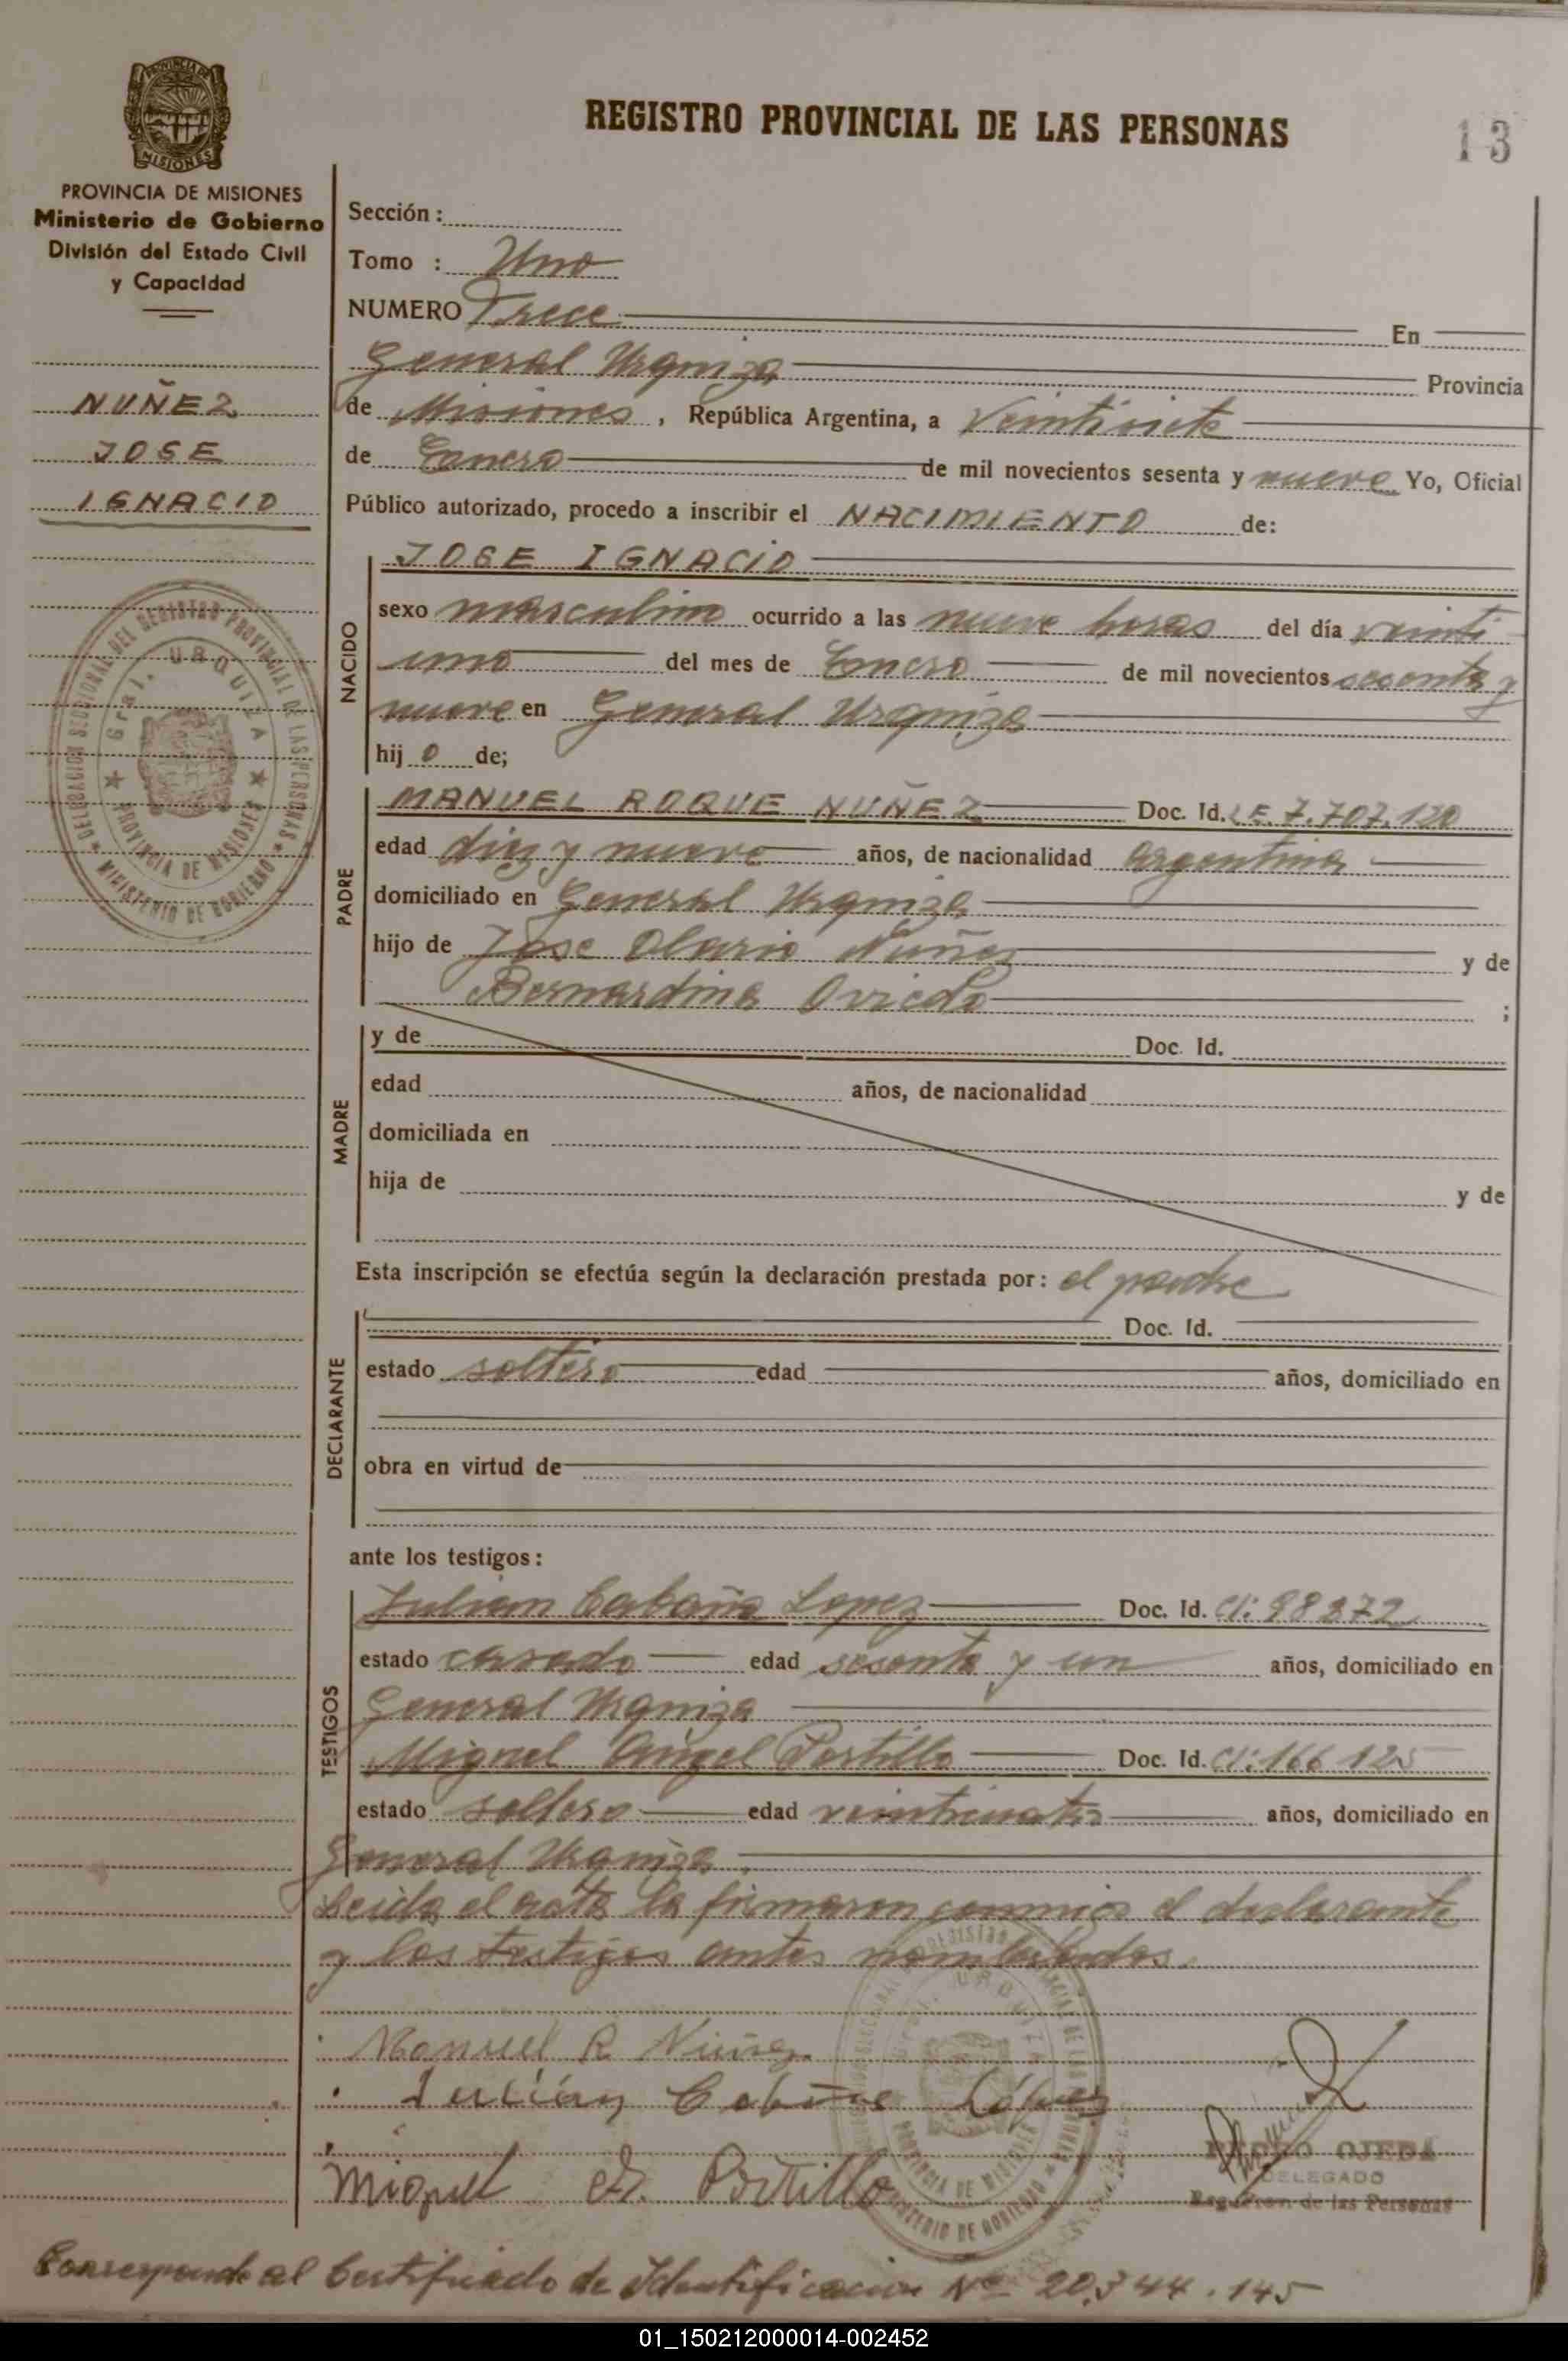 REGISTRO PROVINCIAL DE LAS PERSONAS
13
PROVINCIA DE MISIONES
Ministerio de Gobierno
División del Estado Civil
y Capacidad
NUÑEZ
JOSE
IGNACIO
Sección :
Tomo : Uno
NUMERO Trece En
General Urquiza Provincia
de Misiones , República Argentina, a Veintisiete
de Enero de mil novecientos sesenta y nueve Yo, Oficial
Público autorizado, procedo a inscribir el NACIMIENTO de:
NACIDO
JOSE IGNACIO
sexo masculino ocurrido a las nueve horas del día veinti
uno del mes de Enero de mil novecientos sesenta y
nueve en General Urquiza
hij o de;
PADRE
MANUEL ROQUE NUÑEZ Doc. Id. LE. 7.707.120
edad diez y nueve años, de nacionalidad argentina
domiciliado en General Urquiza
hijo de Jose Olario Nuñez y de
Bernardina Oviedo ;
MADRE
y de Doc. Id.
edad años, de nacionalidad
domiciliada en
hija de y de
Esta inscripción se efectúa según la declaración prestada por: el padre
DECLARANTE
Doc. Id.
estado soltero edad años, domiciliado en
obra en virtud de
ante los testigos:
TESTIGOS
Julian Cabaña Lopez Doc. Id. CI: 98372
estado casado edad sesenta y un años, domiciliado en
General Urquiza
Miguel Angel Portillo Doc. Id. CI: 166125
estado soltero edad veinticuatro años, domiciliado en
General Urquiza.
Leida el acta la firmaron conmigo el declarante
y los testigos antes nombrados.
Manuel R Nuñez
Julián Cabañe López
Miguel A. Portillo
OJEDA
DELEGADO
de las Personas
Corresponde al Certificado de Identificacion Nº 20.344.145
DELEGACION SECCIONAL DEL REGISTRO PROVINCIAL DE LAS PERSONAS
Gral. URQUIZA
PROVINCIA DE MISIONES
MINISTERIO DE GOBIERNO
01_150212000014-002452